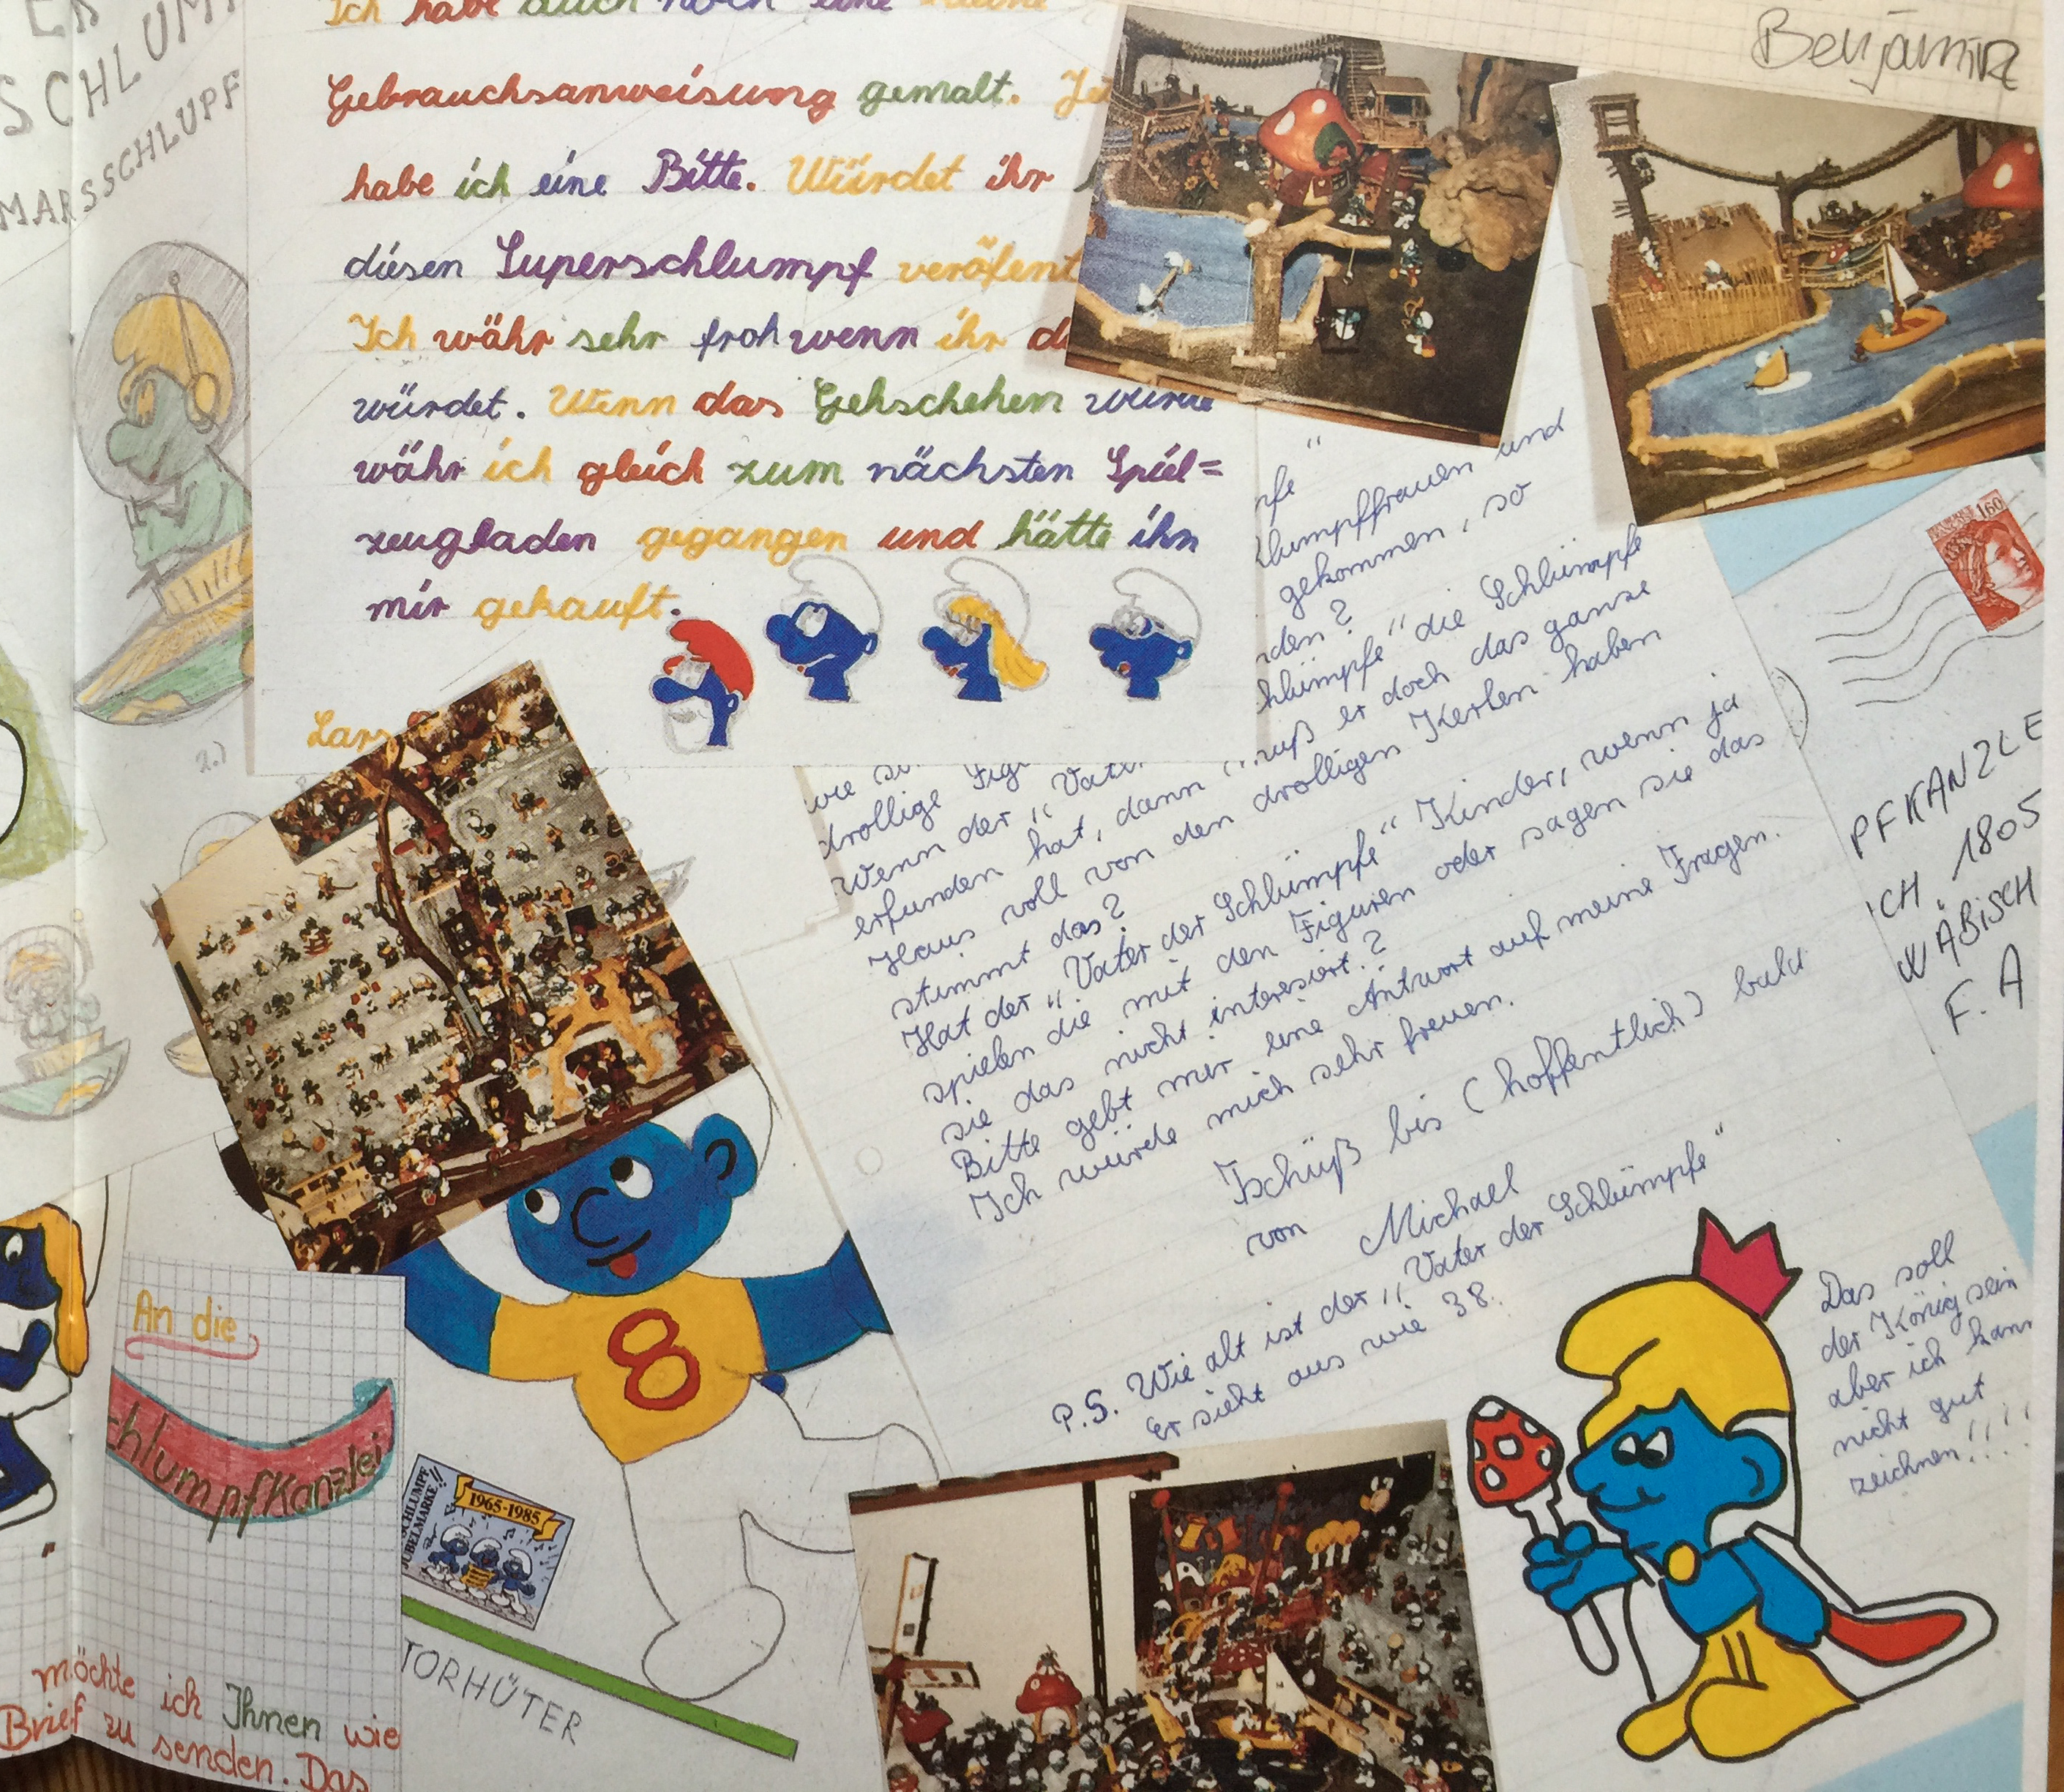 SCHLUM
MARSSCHLUPF
2.)
Ich habe auch noch eine kleine
Gebrauchsanweisung gemalt.
habe ich eine Bitte. Würdet ihr
diesen Superschlumpf veröfent
Ich währ sehr froh wenn ihr
würdet. Wenn das Gehschehen würde
währ ich gleich zum nächsten Spiel=
zeugladen gegangen und hätte ihn
mir gekauft.
Lars
Benjamin
pfe"
lumpffrauen und
gekommen, so
den?
hlümpfe" die Schlümpfe
drollige
Wenn der „Vate
erfunden hat, dann muß er doch das ganze
Haus voll von den drolligen Kerlen haben
stimmt das?
Hat der „Vater der Schlümpfe" Kinder, wenn ja
spielen die mit den Figuren oder sagen sie das
sie das nicht interesiert?
Bitte gebt mir eine Antwort auf meine Fragen.
Ich würde mich sehr freuen.
Tschüß bis (hoffentlich) bald
von Michael
P.S. Wie alt ist der „Vater der Schlümpfe"
Er sieht aus wie 38.
1,60
PFKANZLE
ICH, 1805
WÄBISCH
F. A
Das soll
der König sein
aber ich kann
nicht gut
zeichnen!!!!
An die
chlumpfKanzlei
möchte ich Ihnen wie
Brief zu senden. Das
SCHLUMPF
JUBELMARKE!!
1965-1985
8
TORHÜTER